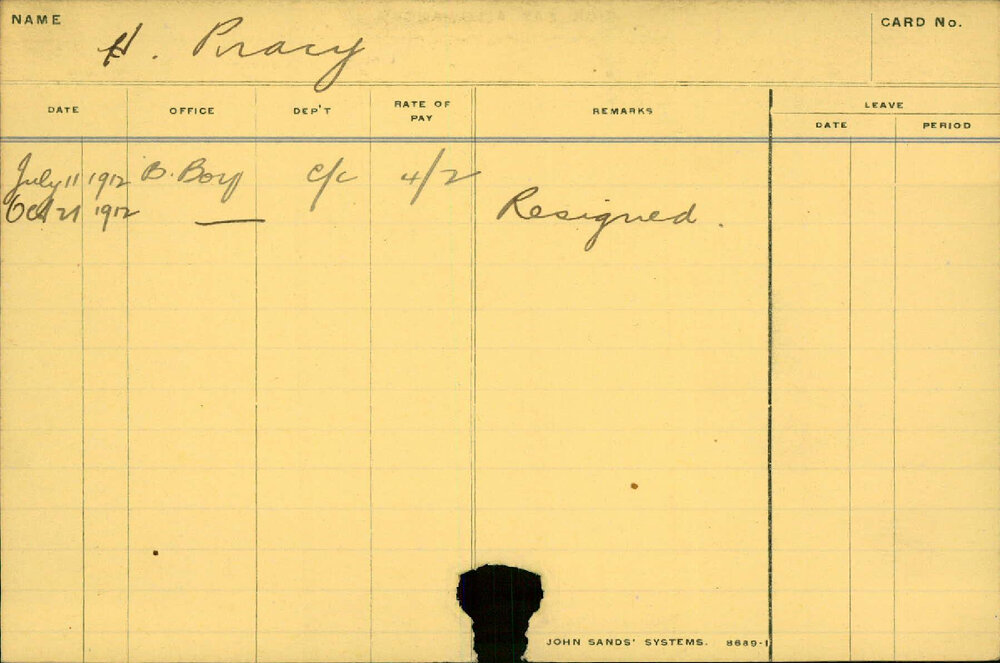 NAME
H. Piracy
CARD No.
DATE OFFICE DEP'T RATE OF PAY REMARKS LEAVE
DATE PERIOD
July 11 1912 B. Boy C/C 4/2
Oct 21 1912 — Resigned.
JOHN SANDS' SYSTEMS. 8689-1